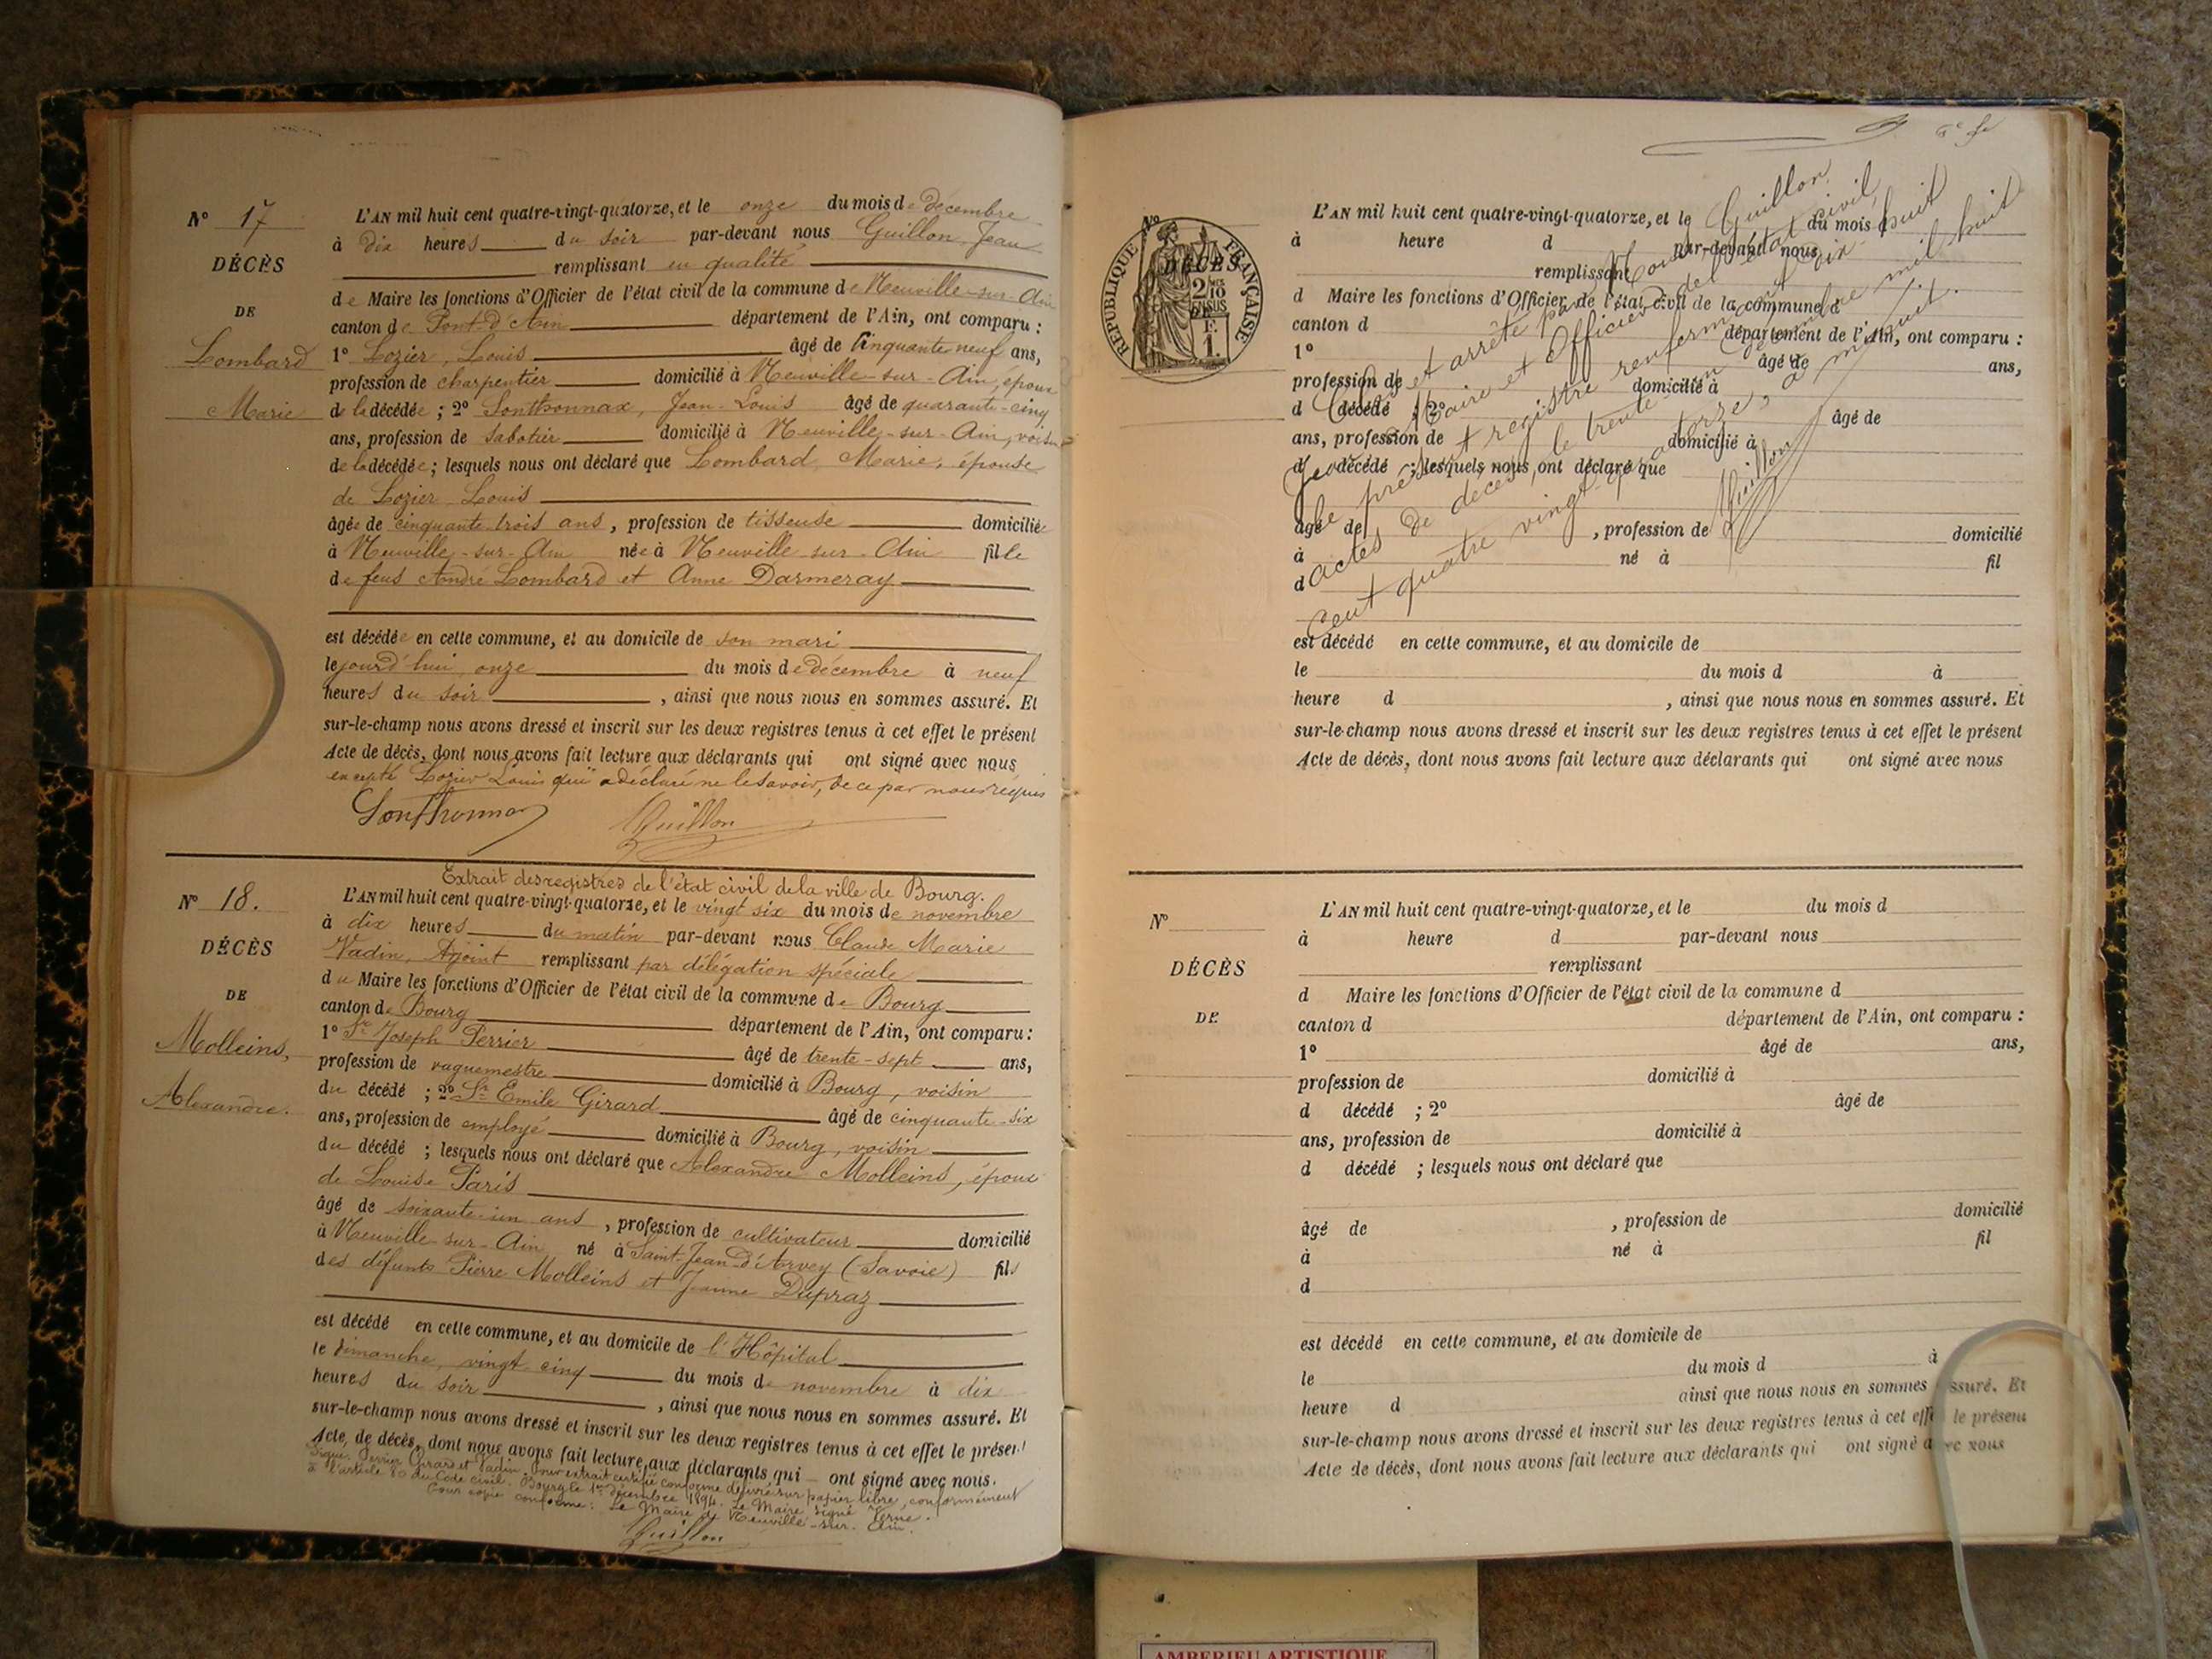 N° 17
DÉCÈS
DE
Lombard
Marie
L'AN mil huit cent quatre-vingt-quatorze, et le onze du mois de décembre
à dix heures du soir par-devant nous Guillon, Jean
remplissant en qualité
de Maire les fonctions d'Officier de l'état civil de la commune de Neuville-sur-Ain
canton de Pont-d'Ain département de l'Ain, ont comparu :
1° Lozier, Louis âgé de cinquante neuf ans,
profession de charpentier domicilié à Neuville-sur-Ain, époux
de la décédée ; 2° Sonthonnax, Jean-Louis âgé de quarante-cinq
ans, profession de sabotier domicilié à Neuville-sur-Ain, voisin
de la décédée ; lesquels nous ont déclaré que Lombard, Marie, épouse
de Lozier Louis
âgée de cinquante trois ans, profession de tisseuse domiciliée
à Neuville-sur-Ain née à Neuville-sur-Ain fille
de feus André Lombard et Anne Darmeray
est décédée en cette commune, et au domicile de son mari
le jourd'hui onze du mois de décembre à neuf
heures du soir, ainsi que nous nous en sommes assuré. Et
sur-le-champ nous avons dressé et inscrit sur les deux registres tenus à cet effet le présent
Acte de décès, dont nous avons fait lecture aux déclarants qui ont signé avec nous
excepté Lozier Louis qui a déclaré ne le savoir, de ce par nous requis
Sonthonnax Guillon
Extrait des registres de l'état civil de la ville de Bourg.
N° 18.
DÉCÈS
DE
Molleins,
Alexandre.
L'AN mil huit cent quatre-vingt-quatorze, et le vingt six du mois de novembre
à dix heures du matin par-devant nous Claude Marie
Vadin, Adjoint remplissant par délégation spéciale
du Maire les fonctions d'Officier de l'état civil de la commune de Bourg
canton de Bourg département de l'Ain, ont comparu :
1° Sr Joseph Perrier âgé de trente-sept ans,
profession de vaguemestre domicilié à Bourg, voisin
du décédé ; 2° Sr Emile Girard âgé de cinquante-six
ans, profession de employé domicilié à Bourg, voisin
du décédé ; lesquels nous ont déclaré que Alexandre Molleins, époux
de Louise Paris
âgé de soixante-un ans, profession de cultivateur domicilié
à Neuville-sur-Ain né à Saint-Jean-d'Arvey (Savoie) fils
des défunts Pierre Molleins et Jeanne Dupraz
est décédé en cette commune, et au domicile de l'Hôpital
le dimanche, vingt cinq du mois de novembre à dix
heures du soir, ainsi que nous nous en sommes assuré. Et
sur-le-champ nous avons dressé et inscrit sur les deux registres tenus à cet effet le présent
Acte de décès, dont nous avons fait lecture aux déclarants qui ont signé avec nous.
Signé: Perrier, Girard et Vadin. Pour extrait certifié conforme délivré sur papier libre, conformément
à l'article 80 du Code civil. Bourg le 1er décembre 1894. Le Maire signé Verne.
Pour copie conforme: Le Maire de Neuville-sur-Ain.
Guillon
RÉPUBLIQUE FRANÇAISE
2/10
F.
1.
N°
DÉCÈS
L'AN mil huit cent quatre-vingt-quatorze, et le du mois d
à heure d par-devant nous
remplissant
d Maire les fonctions d'Officier de l'état civil de la commune d
canton d département de l'Ain, ont comparu :
1° âgé de ans,
profession de domicilié à
d décédé ; 2° âgé de
ans, profession de domicilié à
d décédé ; lesquels nous ont déclaré que
âgé de , profession de domicilié
à né à fil
d
Clos et arrêté par Nous, Guillon
Jean, Maire et Officier de l'état civil,
le présent registre renfermant dix-huit
actes de décès, le trente-un décembre mil huit
cent quatre vingt quatorze, à minuit.
Guillon
est décédé en cette commune, et au domicile de
le du mois d à
heure d , ainsi que nous nous en sommes assuré. Et
sur-le-champ nous avons dressé et inscrit sur les deux registres tenus à cet effet le présent
Acte de décès, dont nous avons fait lecture aux déclarants qui ont signé avec nous
N°
DÉCÈS
DE
L'AN mil huit cent quatre-vingt-quatorze, et le du mois d
à heure d par-devant nous
remplissant
d Maire les fonctions d'Officier de l'état civil de la commune d
canton d département de l'Ain, ont comparu :
1° âgé de ans,
profession de domicilié à
d décédé ; 2° âgé de
ans, profession de domicilié à
d décédé ; lesquels nous ont déclaré que
âgé de , profession de domicilié
à né à fil
d
est décédé en cette commune, et au domicile de
le du mois d à
heure d ainsi que nous nous en sommes assuré. Et
sur-le-champ nous avons dressé et inscrit sur les deux registres tenus à cet effet le présent
Acte de décès, dont nous avons fait lecture aux déclarants qui ont signé avec nous
AMBERIEU ARTISTIQUE